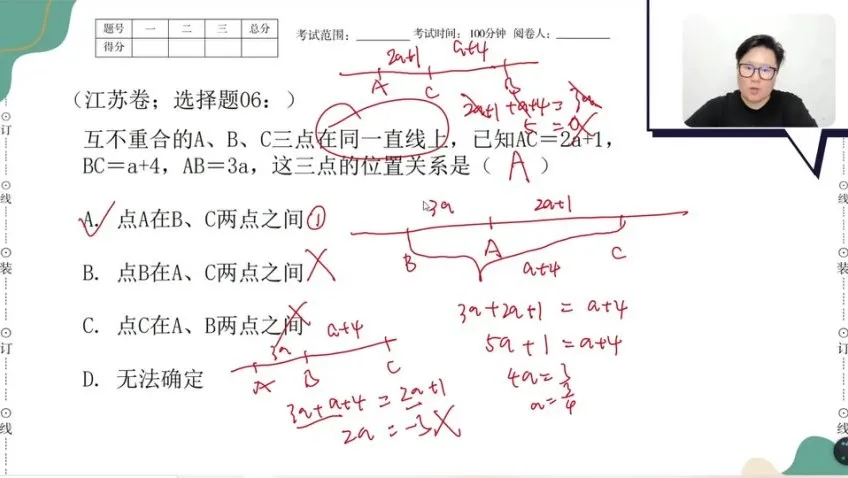 题号 一 二 三 总分
得分
考试范围： 考试时间：100分钟 阅卷人：
2a+1 a+4
A C B
（江苏卷；选择题06：）
2a+1+a+4=3a
5=0
互不重合的A、B、C三点在同一直线上，已知AC＝2a+1，
BC＝a+4，AB＝3a，这三点的位置关系是（ A ）
A. 点A在B、C两点之间 ①
3a 2a+1
B A C
a+4
B. 点B在A、C两点之间
3a+2a+1=a+4
C. 点C在A、B两点之间
5a+1=a+4
3a a+4
A B C
D. 无法确定
4a=3
a=3/4
3a+a+4=2a+1
2a=-3
订
线
装
订
线
订
线
装
订
线